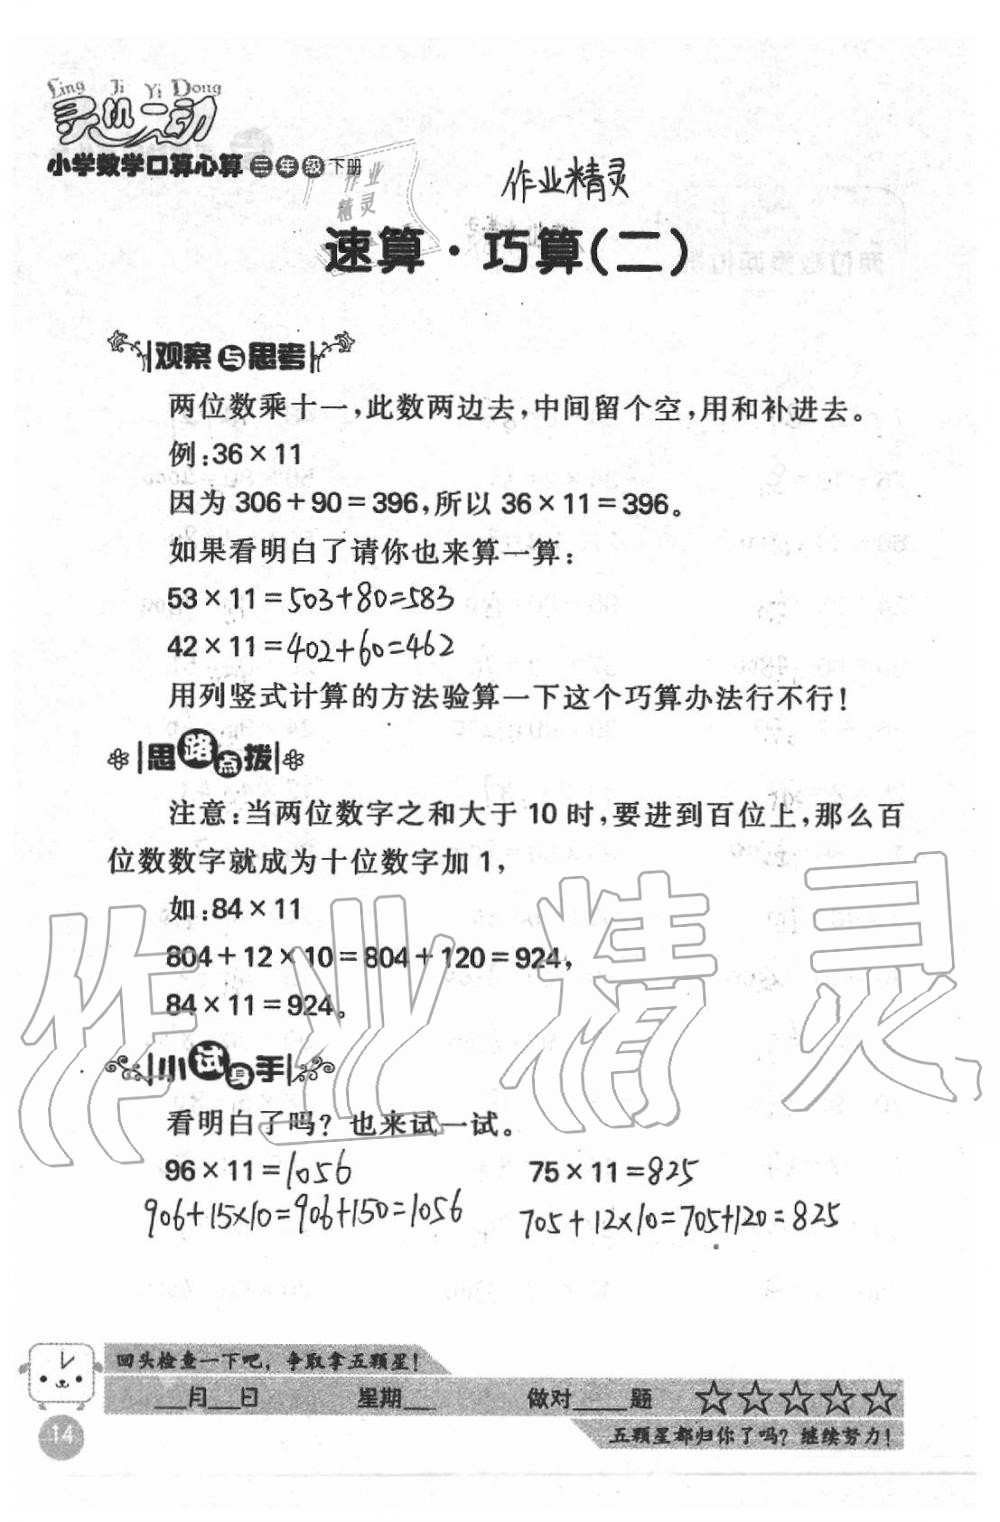 Ling Ji Yi Dong
灵机一动
小学数学口算心算 三年级 下册
作业
精灵
作业精灵
速算·巧算(二)
观察与思考
两位数乘十一,此数两边去,中间留个空,用和补进去。
例:36×11
因为 306+90=396,所以 36×11=396。
如果看明白了请你也来算一算:
53×11=503+80=583
42×11=402+60=462
用列竖式计算的方法验算一下这个巧算办法行不行!
思路点拨
注意:当两位数字之和大于 10 时,要进到百位上,那么百
位数数字就成为十位数字加 1,
如:84×11
804+12×10=804+120=924,
84×11=924。
小试身手
看明白了吗? 也来试一试。
96×11=1056 75×11=825
906+15×10=906+150=1056 705+12×10=705+120=825
作业精灵
回头检查一下吧,争取拿五颗星!
___月___日 星期___ 做对_____题 ☆☆☆☆☆
五颗星都归你了吗?继续努力!
14